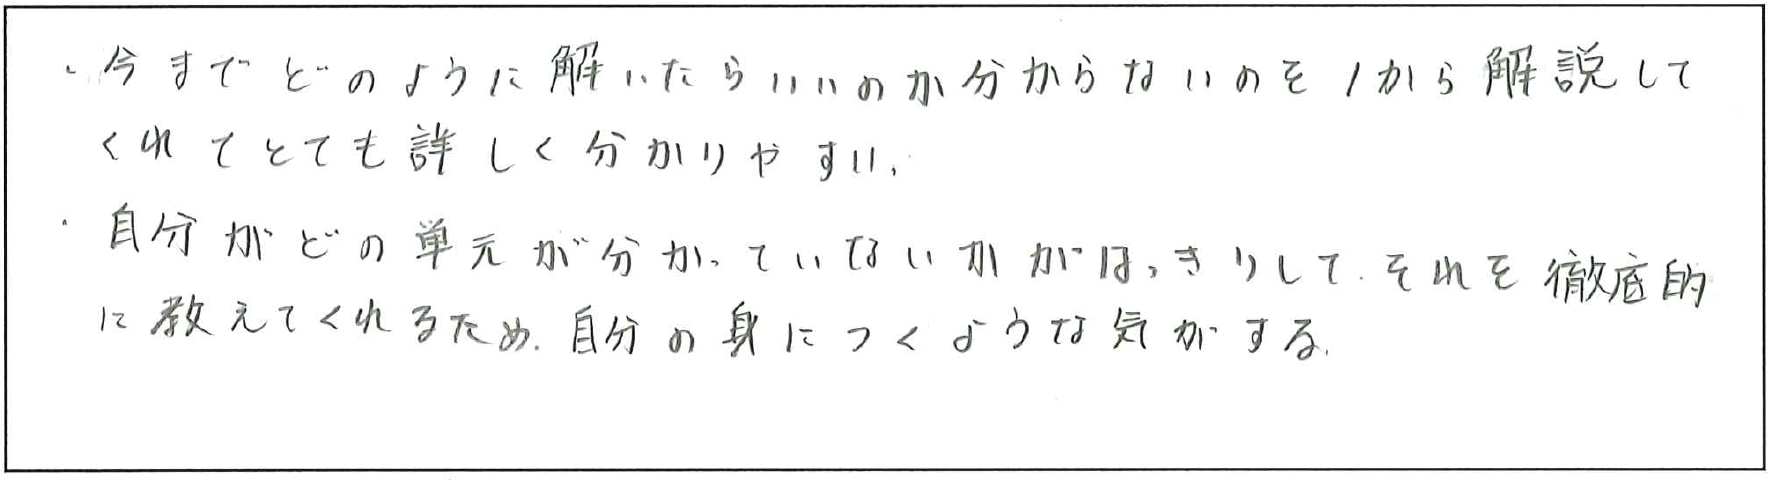 ・今までどのように解いたらいいのか分からないのを1から解説して
くれてとても詳しく分かりやすい。
・自分がどの単元が分かっていないかがはっきりして、それを徹底的
に教えてくれるため、自分の身につくような気がする。